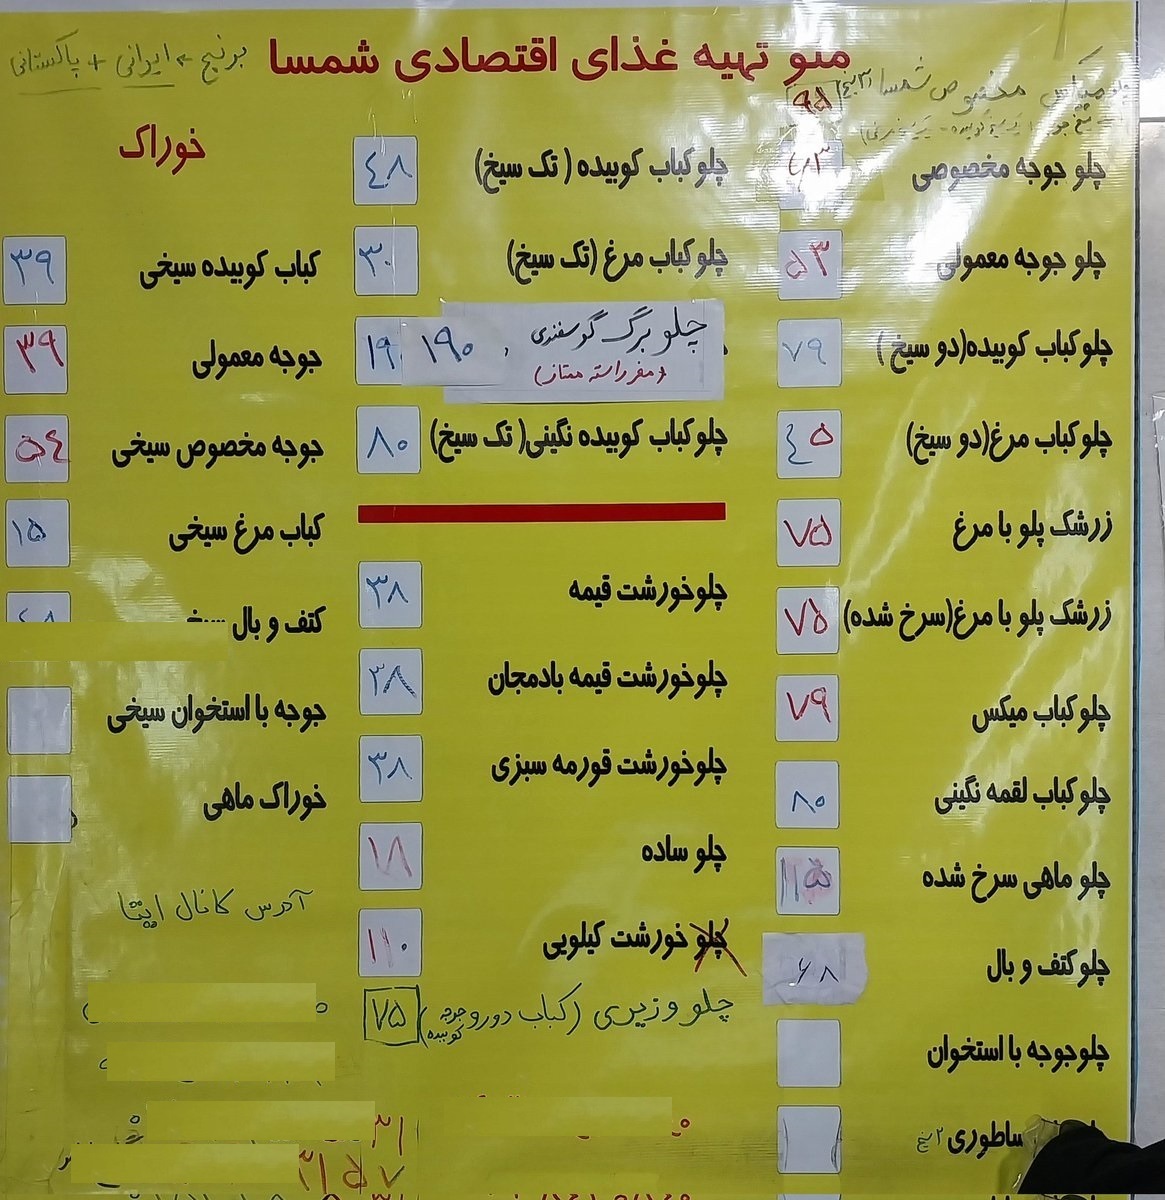 منو تهیه غذای اقتصادی شمسا
برنج + ایرانی + پاکستانی
میکس مخصوص شمسا
۹۵
چلو جوجه مخصوصی
چلو جوجه معمولی ۵۳
چلوکباب کوبیده(دو سیخ) ۷۹
چلوکباب مرغ(دو سیخ) ٤۵
زرشک پلو با مرغ ۷۵
زرشک پلو با مرغ(سرخ شده) ۷۵
چلوکباب میکس ۷۹
چلوکباب لقمه نگینی ۸۰
چلو ماهی سرخ شده ۱۲۵
چلوکتف و بال ۶۸
چلوجوجه با استخوان
ساطوری ۲ سیخ
چلوکباب کوبیده ( تک سیخ) ٤۸
چلوکباب مرغ (تک سیخ) ۳۰
چلو برگ گوسفندی ۱۹۰
(مغز راسته ممتاز)
چلوکباب کوبیده نگینی( تک سیخ) ۸۰
چلوخورشت قیمه ۳۸
چلوخورشت قیمه بادمجان ۳۸
چلوخورشت قورمه سبزی ۳۸
چلو ساده ۱۸
چلو خورشت کیلویی ۱۱۰
چلو وزیری (کباب دورو جوجه کوبیده) ۷۵
خوراک
کباب کوبیده سیخی ۳۹
جوجه معمولی ۳۹
جوجه مخصوص سیخی ۵٤
کباب مرغ سیخی ۱۵
کتف و بال
جوجه با استخوان سیخی
خوراک ماهی
آدرس کانال ایتا